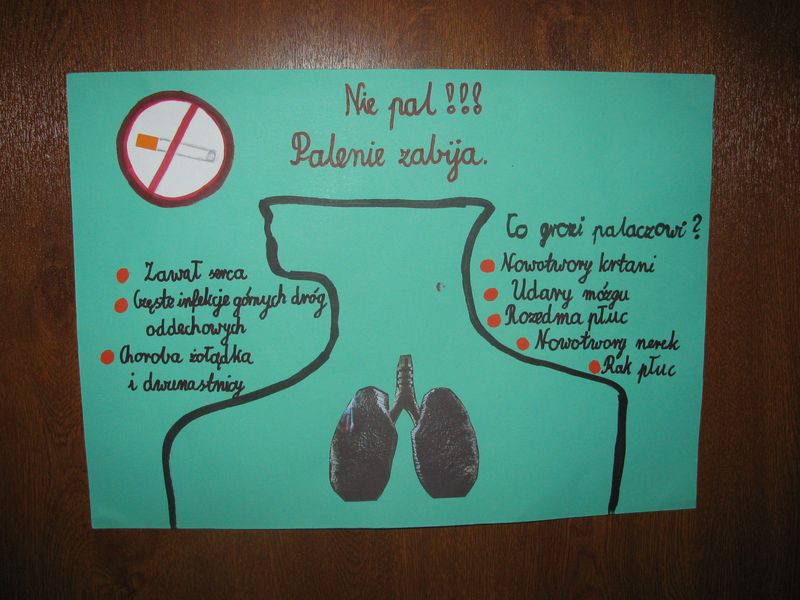 Nie pal!!!
Palenie zabija.
Co grozi palaczowi?
Zawał serca
Częste infekcje górnych dróg
oddechowych
Choroba żołądka
i dwunastnicy
Nowotwory krtani
Udary mózgu
Rozedma płuc
Nowotwory nerek
Rak płuc